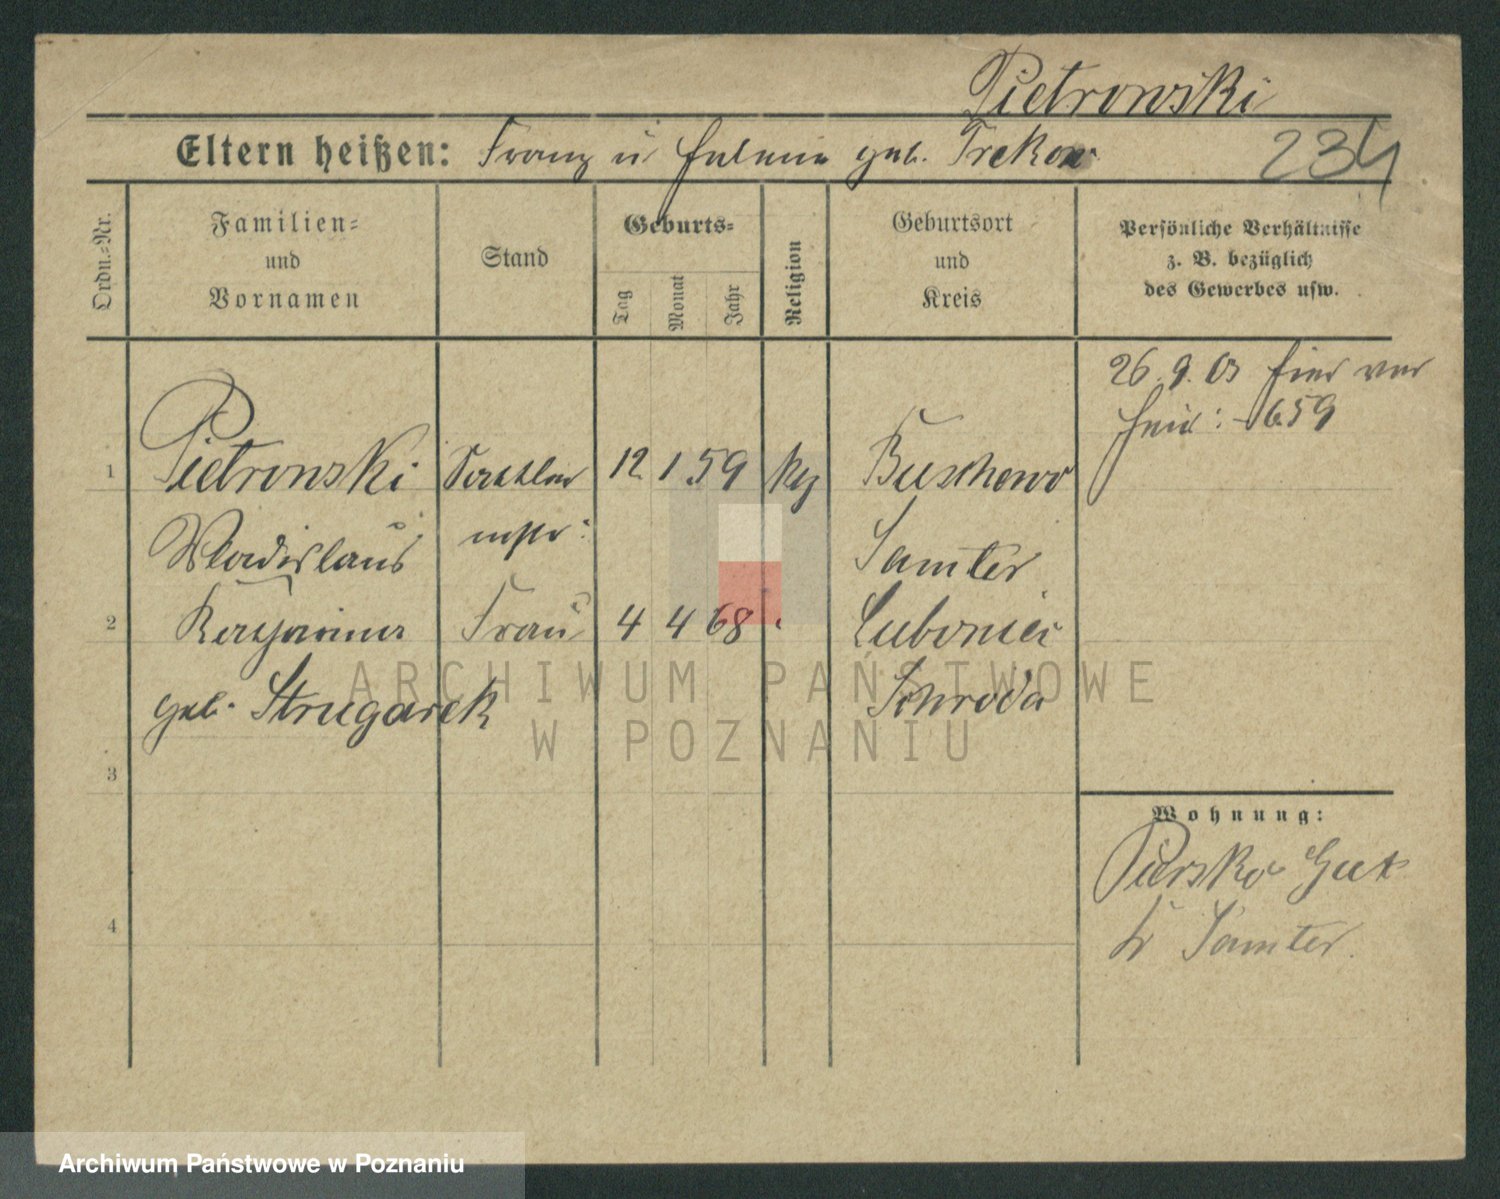 Pietrowski
Eltern heißen: Franz u geb. Trekow
234
Ordn.-Nr.
Familien-
und
Vornamen
Stand
Geburts-
Tag
Monat
Jahr
Religion
Geburtsort
und
Kreis
Persönliche Verhältnisse
z. B. bezüglich
des Gewerbes usw.
26. 9. 03 hier
659
1 Pietrowski Sattler 12 1 59 Buschewo
Wladislaus mstr: Samter
2 Katharina Frau 4 4 68 "
geb. Strugarek Schroda
3
4
Wohnung:
Piersko Gut
Kr Samter.
ARCHIWUM PAŃSTWOWE
W POZNANIU
Archiwum Państwowe w Poznaniu